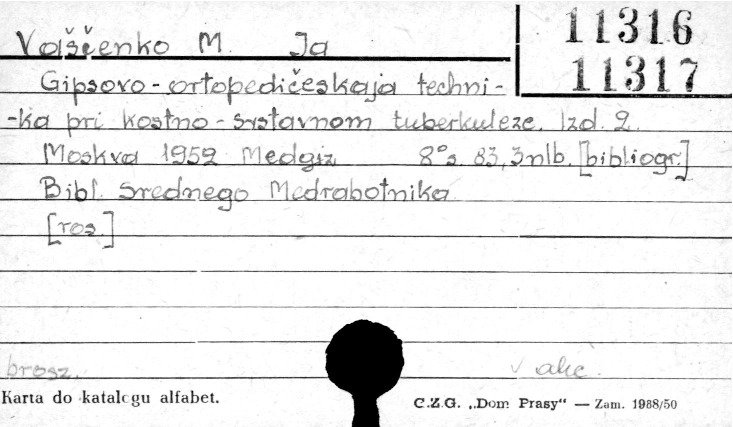 Vaščenko M. Ja
11316
11317
Gipsovo-ortopedičeskaja techni-
-ka pri kostno-srstavnom tuberkuleze. Izd. 2.
Moskva 1952 Medgiz 8° s. 83, 3 nlb. [bibliogr.]
Bibl. srednego Medrabotnika
[ros.]
brosz. v akc.
Karta do katalogu alfabet.
C.Z.G. „Dom Prasy" — Zam. 1988/50